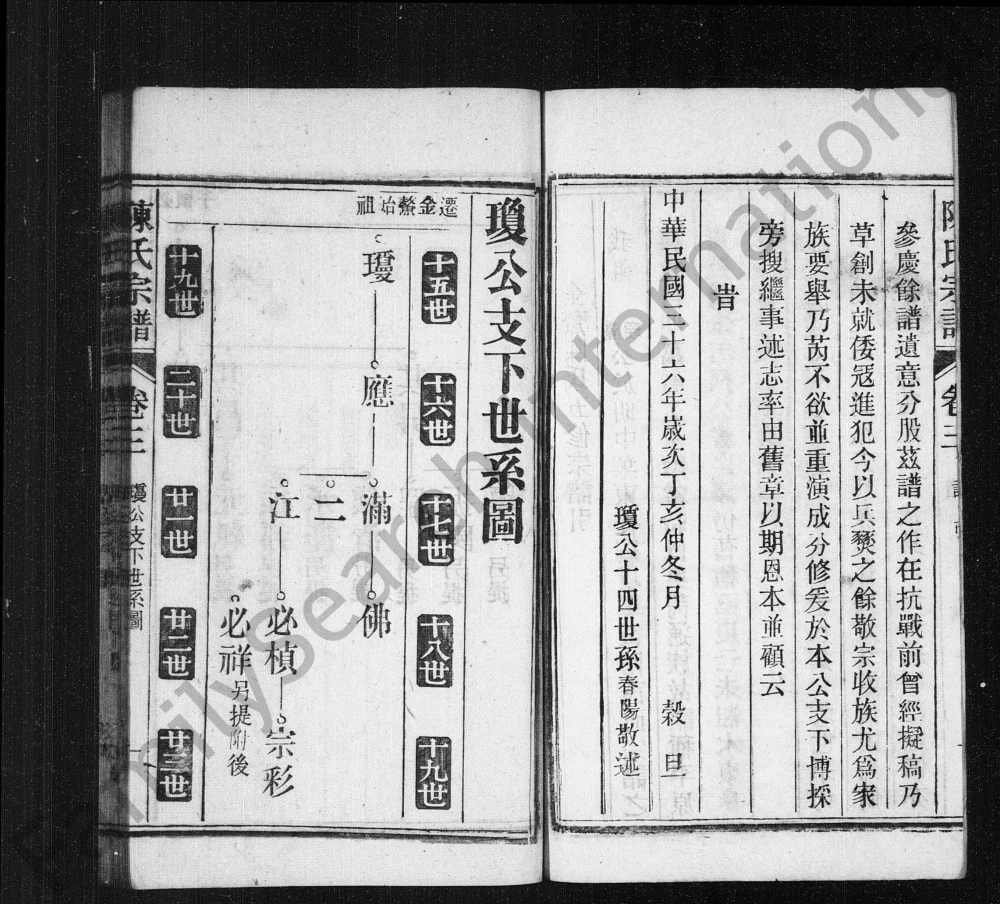 參慶餘譜遺意分股茲譜之作在抗戰前曾經擬稿乃
草創未就倭寇進犯今以兵燹之餘敬宗收族尤爲家
族要舉乃芮不欲並重演成分修爰於本公支下博採
旁搜繼事述志率由舊章以期恩本並顧云
旹
中華民國三十六年歲次丁亥仲冬月 穀 旦
瓊公十四世孫春陽敬述
瓊公支下世系圖
十五世 十六世 十七世 十八世 十九世
遷金鰲始祖
瓊 應 滿 佛
二
江 必楨 宗彩
必祥另提附後
十九世 二十世 廿一世 廿二世 廿三世
陳氏宗譜 卷三 瓊公支下世系圖
familysearch international